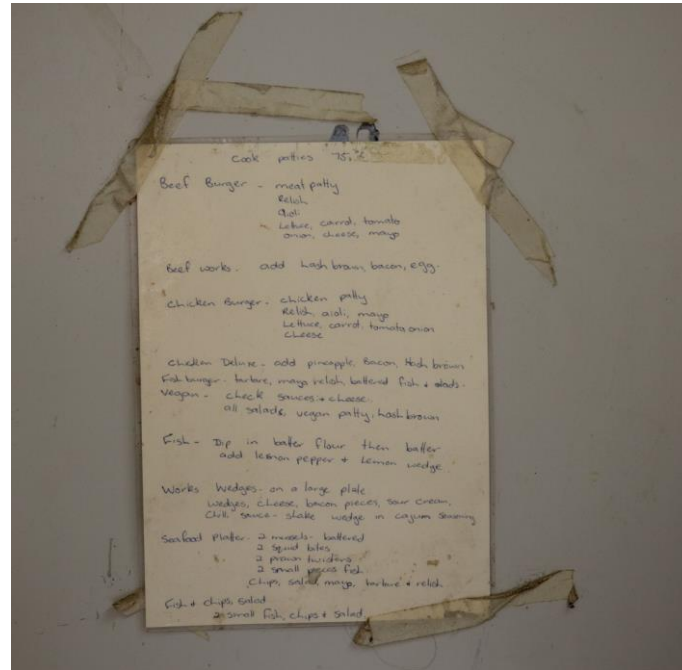 Cook patties 75.°c
Beef Burger - meat patty
Relish
aioli
Lettuce, carrot, tomato
onion, cheese, mayo
Beef works - add hash brown, bacon, egg.
Chicken Burger - chicken patty
Relish, aioli, mayo
Lettuce, carrot, tomato onion
cheese
Chicken Deluxe - add pineapple, Bacon, Hash brown
Fish burger - tartare, mayo relish, battered fish + salads.
Vegan - check sauces + cheese.
all salads, vegan patty, hash brown
Fish - Dip in batter flour then batter
add lemon pepper + lemon wedge
Works Wedges - on a large plate
wedges, cheese, bacon pieces, sour cream,
Chilli sauce - shake wedge in cajum seasoning
Seafood Platter - 2 mussels - battered
2 squid bites
2 prawn twisters
2 small pieces fish
Chips, salad, mayo, tartare + relish
Fish + chips, salad
2 small fish, chips + salad